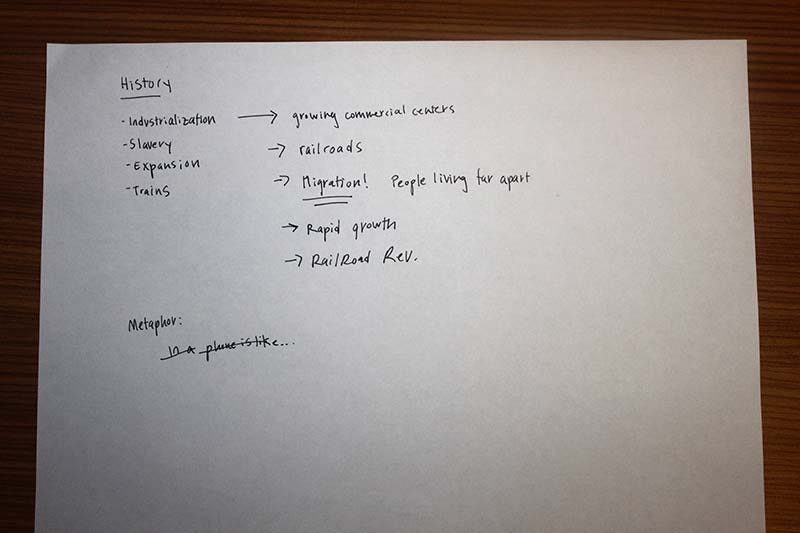 History
- Industrialization → growing commercial centers
- Slavery → railroads
- Expansion
→ Migration! People living far apart
- Trains
→ Rapid growth
→ RailRoad Rev.
Metaphor:
In a phone is like...